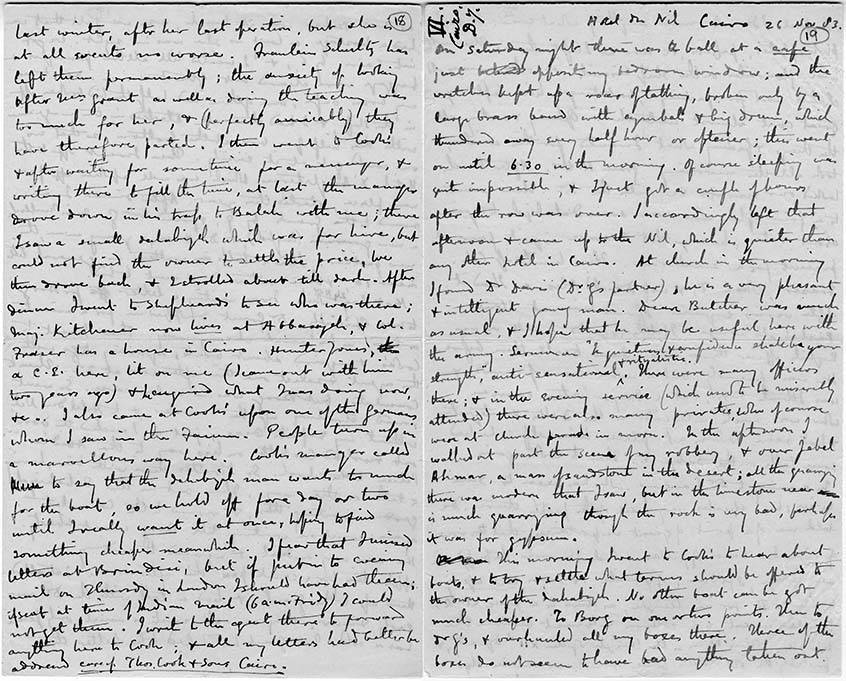 18
last winter, after her last operation, but she is
at all events no worse. Fraulein Schultz has
left them permanently; the anxiety of looking
after Miss Grant as well as doing the teaching was
too much for her, & (perfectly amicably) they
have therefore parted. I then went to Cook's
& after waiting for sometime for a manager, &
writing there to fill the time, at last the manager
drove down in his trap to Bulak with me; there
I saw a small dahabiyeh which was for hire, but
could not find the owner to settle the price, we
then drove back, & I strolled about till dark. After
dinner I went to Shepheard's to see who was there;
Maj. Kitchener now lives at Abbasiyeh, & Col.
Fraser has a house in Cairo. Hunter Jones,
a C.E. here, lit on me (I came out with him
two years ago) & enquired what I was doing now,
&c.. I also came at Cook's upon one of the Germans
whom I saw in the Faium. People turn up in
a marvellous way here. Cook's manager called
to say that the dahabiyeh man wants too much
for the boat, so we hold off for a day or two
until I really want it at once, hoping to find
something cheaper meanwhile. I fear that I missed
letters at Brindisi, but if put in to evening
mail on Thursday in London I should have had them;
if sent at time of Indian mail (6 am Friday) I could
not get them. I wrote to the agent there to forward
anything here to Cook; & all my letters had better be
addressed care of Thos. Cook & Sons Cairo.
VI.
Cairo.
D.7.
Hotel du Nil Cairo 26 Nov 83.
19
On Saturday night there was the ball at a cafe
just opposite my bedroom window; and the
wretches kept up a roar of talking, broken only by a
large brass band with cymbals & big drum, which
thundered away every half hour or oftener; this went
on until 6.30 in the morning. Of course sleeping was
quite impossible, & I just got a couple of hours
after the row was over. I accordingly left that
afternoon & came up to the Nil, which is quieter than
any other hotel in Cairo. At church in the morning
I found Dr Davis (Dr G's partner), he is a very pleasant
& intelligent young man. Dean Butcher was much
as usual, & I hope that he may be useful here with
the army. Sermon on "In quietness & confidence shall be your
strength", anti sensational & ritualistic. There were many officers
there; & in the evening service (which used to be miserably
attended) there were also many privates, who of course
were at church parade in morn. In the afternoon I
walked out past the scene of my robbery, & over Jebel
Ahmar, a mass of sandstone in the desert; all the quarrying
there was modern that I saw, but in the limestone near
is much quarrying though the rock is very bad, perhaps
it was for gypsum.
This morning I went to Cook's to hear about
boats, & to try & settle what terms should be offered to
the owner of the dahabiyeh. No other boat can be got
much cheaper. To Borg on various points. Then to
Dr G's, & overhauled all my boxes there. Three of the
boxes do not seem to have had anything taken out.